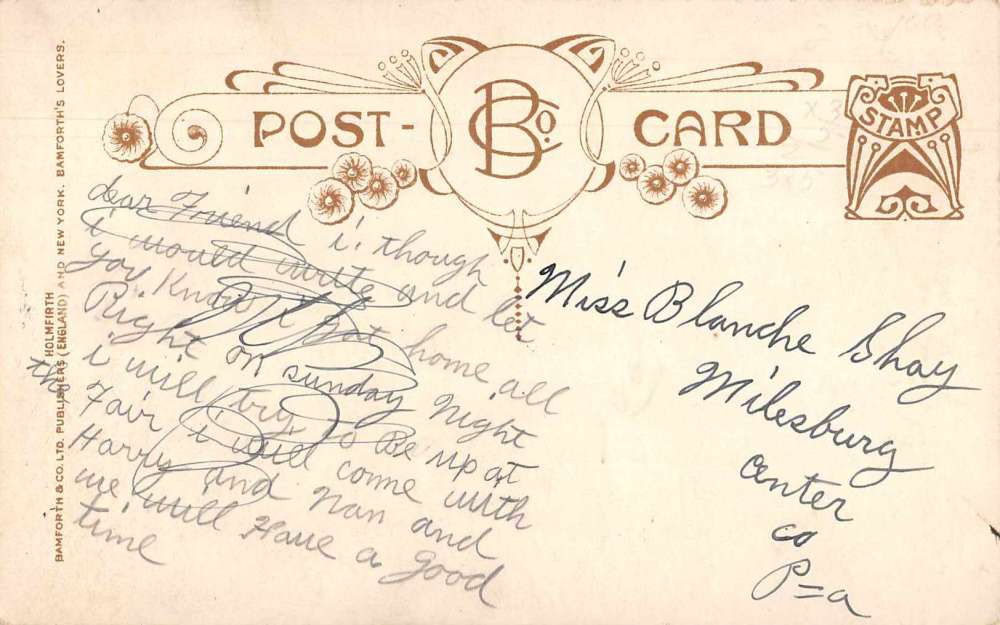 POST-CARD
B Co.
STAMP
HOLMFIRTH
BAMFORTH & CO. LTD. PUBLISHERS (ENGLAND) AND NEW YORK. BAMFORTH'S LOVERS.
dear Friend i. though
i would write and let
you Know i Got home all
Right on sunday Night
i will try to Be up at
the
Fair i will come with
Harry and Nan and
we will Have a good
time
Miss Blanche Shay
Milesburg
Center
co
P=a
x 3
2
3x5